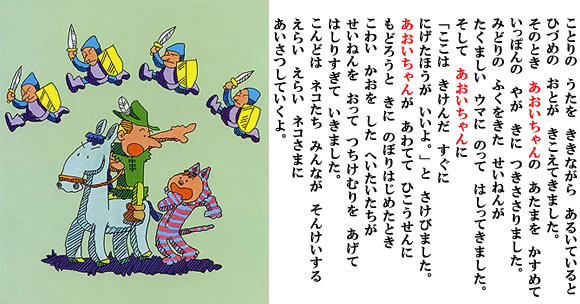 ことりの うたを ききながら あるいていると
ひづめの おとが きこえてきました。
そのとき あおいちゃんの あたまを かすめて
いっぽんの やが きに つきささりました。
みどりの ふくをきた せいねんが
たくましい ウマに のって はしってきました。
そして あおいちゃんに
「ここは きけんだ すぐに
にげたほうが いいよ。」と さけびました。
あおいちゃんが あわてて ひこうせんに
もどろうと きに のぼりはじめたとき
こわい かおを した へいたいたちが
せいねんを おって つちけむりを あげて
はしりすぎて いきました。
こんどは ネコたち みんなが そんけいする
えらい えらい ネコさまに
あいさつしていくよ。